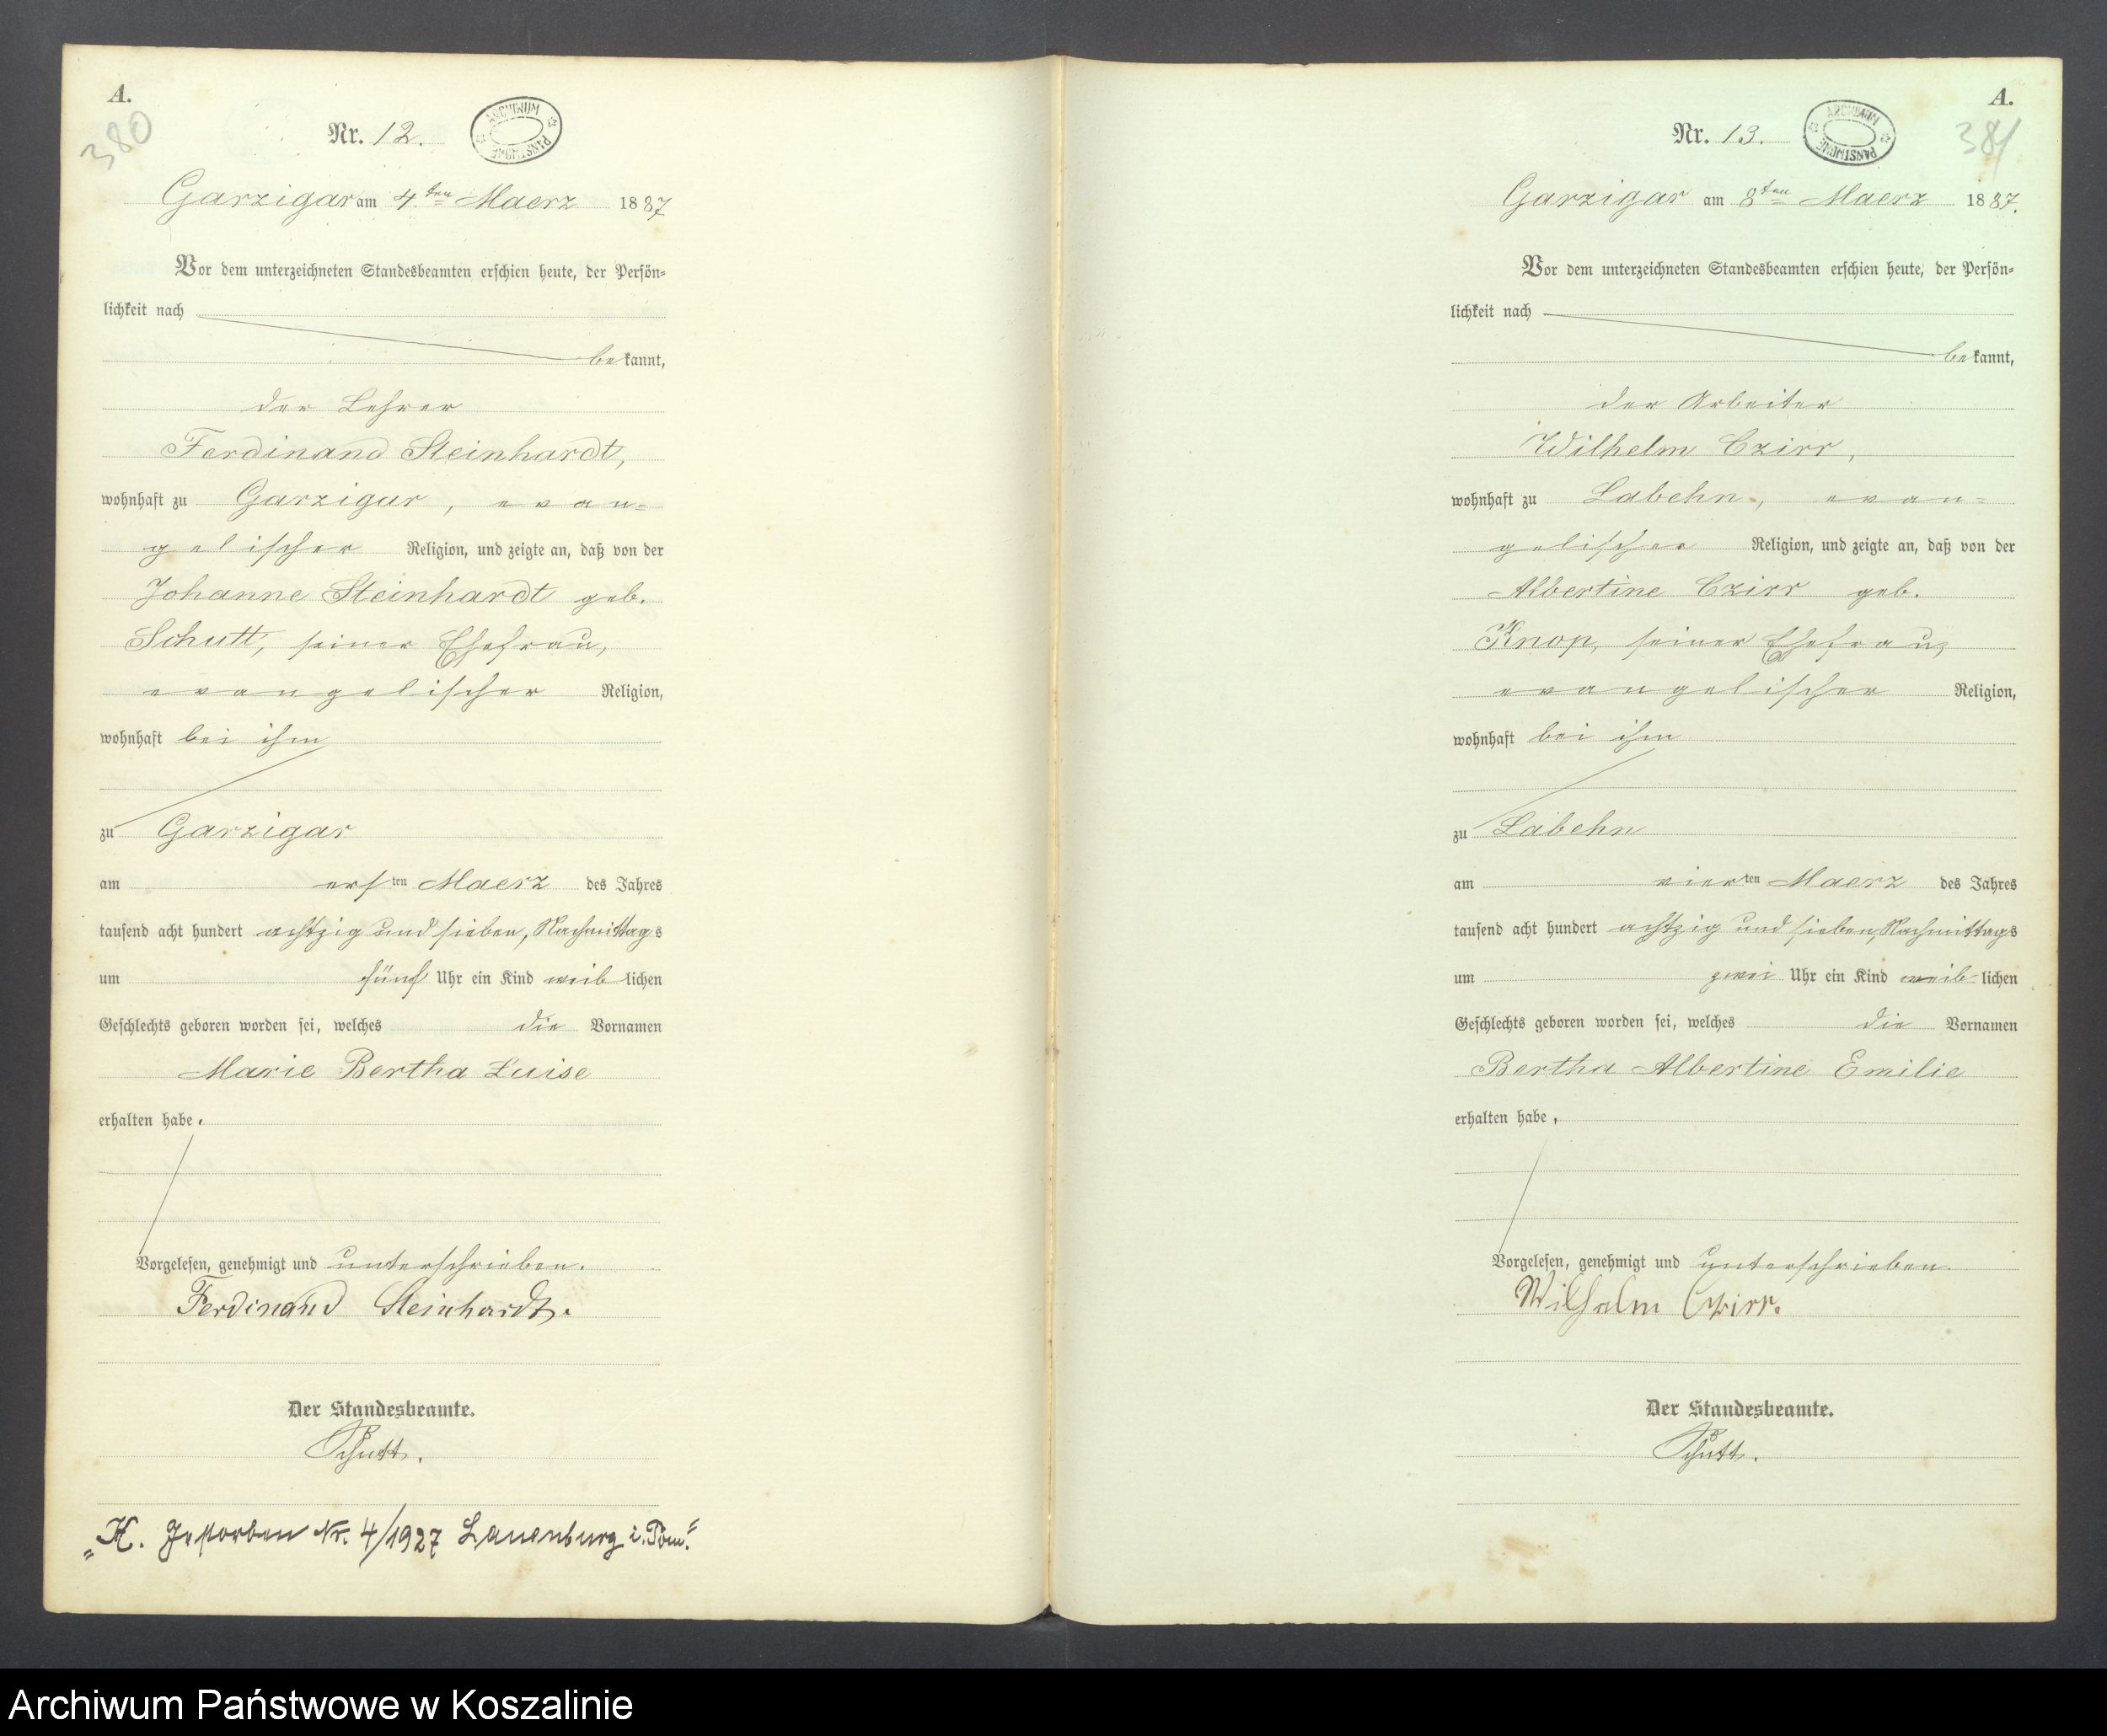 A.
380
Nr. 12.
ARCHIWUM PAŃSTWOWE
Garzigar am 4ten Maerz 1887
Vor dem unterzeichneten Standesbeamten erschien heute, der Persön=
lichkeit nach
bekannt,
der Lehrer
Ferdinand Steinhardt,
wohnhaft zu Garzigar, evan=
gelischer Religion, und zeigte an, daß von der
Johanne Steinhardt geb.
Schutt, seiner Ehefrau,
evangelischer Religion,
wohnhaft bei ihm
zu Garzigar
am ersten Maerz des Jahres
tausend acht hundert achtzig und sieben, Nachmittags
um fünf Uhr ein Kind weiblichen
Geschlechts geboren worden sei, welches die Vornamen
Marie Bertha Luise
erhalten habe.
Vorgelesen, genehmigt und unterschrieben.
Ferdinand Steinhardt.
Der Standesbeamte.
Schutt.
„K. Gestorben Nr. 4/1927 Lauenburg i. Pom."
A.
381
Nr. 13.
ARCHIWUM PAŃSTWOWE
Garzigar am 8ten Maerz 1887.
Vor dem unterzeichneten Standesbeamten erschien heute, der Persön=
lichkeit nach
bekannt,
der Arbeiter
Wilhelm Czirr,
wohnhaft zu Labehn, evan=
gelischer Religion, und zeigte an, daß von der
Albertine Czirr geb.
Knop, seiner Ehefrau,
evangelischer Religion,
wohnhaft bei ihm
zu Labehn
am vierten Maerz des Jahres
tausend acht hundert achtzig und sieben, Nachmittags
um zwei Uhr ein Kind weiblichen
Geschlechts geboren worden sei, welches die Vornamen
Bertha Albertine Emilie
erhalten habe.
Vorgelesen, genehmigt und unterschrieben.
Wilhelm Czirr.
Der Standesbeamte.
Schutt.
Archiwum Państwowe w Koszalinie